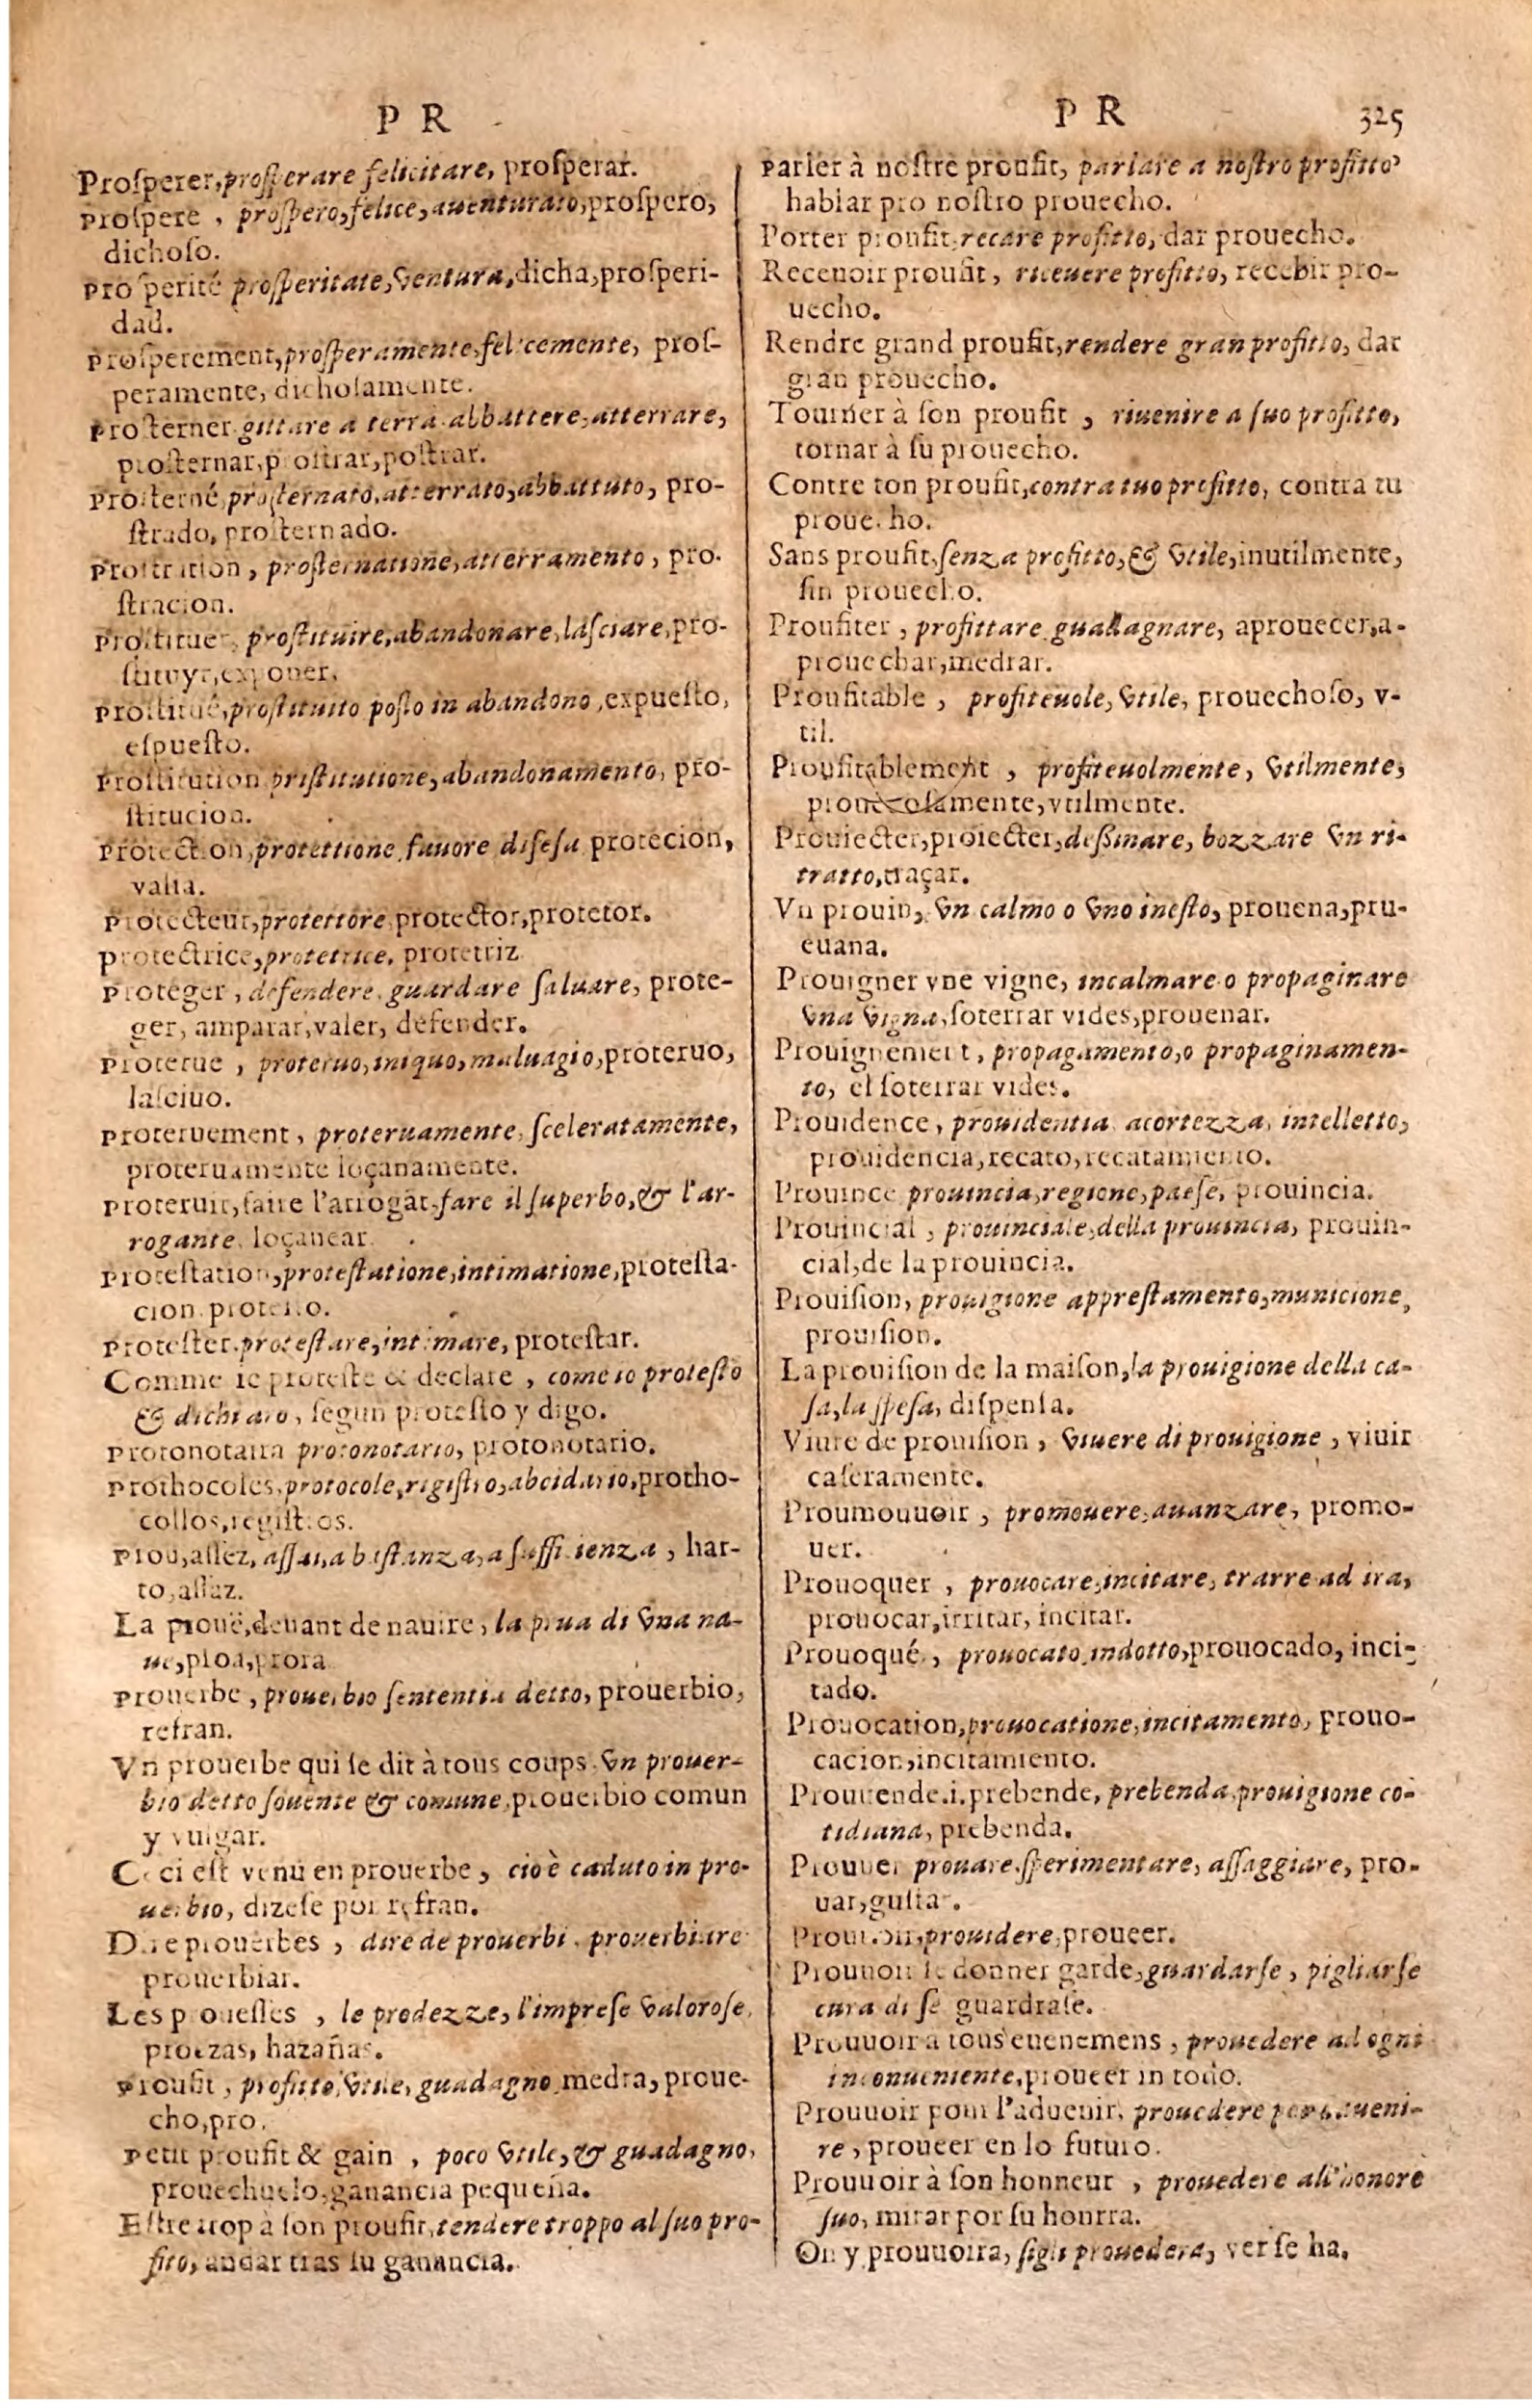 P R
Proſperer, proſperare felicitare, proſperar.
Proſpere , proſpero, felice, auenturato, proſpero,
dichoſo.
Proſperité proſperitate, ventura, dicha, proſperi-
dad.
Proſperement, proſperamente, felicemente, proſ-
peramente, dichoſamente.
Proſterner gittare a terra abbattere, atterrare,
proſternar, proſtrar, poſtrar.
Proſterné, proſternato, atterrato, abbattuto, pro-
ſtrado, proſternado.
Proſtration , proſternatione, atterramento , pro-
ſtracion.
Proſtituer, proſtituire, abandonare, laſciare, pro-
ſtituyr, exponer.
Proſtitué, proſtituito poſto in abandono, expueſto,
eſpueſto.
Proſtitution priſtitutione, abandonamento, pro-
ſtitucion.
Protection, protettione, fauore difeſa protecion,
valia.
Protecteur, protettore protector, protetor.
protectrice, protettrice, protetriz
Proteger , defendere, guardare ſaluare, prote-
ger, amparar, valer, defender.
Proterue , proteruo, iniquo, maluagio, proteruo,
laſciuo.
Proteruement , proteruamente, ſceleratamente,
proteruamente loçanamente.
Proteruir, faire l'arrogāt, fare il ſuperbo, & l'ar-
rogante, loçanear.
Proteſtation, proteſtatione, intimatione, proteſta-
cion proteſto.
Proteſter, proteſtare, intimare, proteſtar.
Comme ie proteſte & declare , come io proteſto
& dichiaro, ſegun proteſto y digo.
Protonotaira protonotario, protonotario.
Prothocoles, protocole, rigiſtro, abcidario, protho-
collos, regiſtros.
Prou, aſſez, aſſai, a baſtanza, a ſufficienza , har-
to, aſſaz.
La prouë, deuant de nauire, la prua di vna na-
ue, proa, prora
Prouerbe , prouerbio ſententia detto, prouerbio,
refran.
Vn prouerbe qui ſe dit à tous coups, vn prouer-
bio detto ſouente & comune, prouerbio comun
y vulgar.
Ceci eſt venu en prouerbe , cio è caduto in pro-
uerbio, dizeſe por refran.
Dire prouerbes , dire de prouerbi, prouerbiare
prouerbiar.
Les proueſſes , le prodezze, l'impreſe valoroſe,
proezas, hazañas.
Proufit , profitto, vtile, guadagno medra, proue-
cho, pro.
Petit proufit & gain , poco vtile, & guadagno,
prouechuelo, ganancia pequeña.
Eſtre trop à ſon proufit, tendere troppo al ſuo pro-
fito, andar tras ſu ganancia.
P R 325
Parler à noſtre proufit, parlare a noſtro profitto,
hablar pro noſtro prouecho.
Porter proufit, recare profitto, dar prouecho.
Receuoir proufit, riceuere profitto, recebir pro-
uecho.
Rendre grand proufit, rendere gran profitto, dar
gran prouecho.
Tourner à ſon proufit , riuenire a ſuo profitto,
tornar à ſu prouecho.
Contre ton proufit, contra tuo profitto, contra tu
prouecho.
Sans proufit, ſenza profitto, & vtile, inutilmente,
ſin prouecho.
Proufiter , profittare guadagnare, aprouecer, a-
prouechar, medrar.
Proufitable , profiteuole, vtile, prouechoſo, v-
til.
Proufitablement , profiteuolmente, vtilmente,
mente, vtilmente.
Prouiecter, proiecter, deſsinare, bozzare vn ri-
tratto, traçar.
Vn prouin, vn calmo o vno ineſto, prouena, pru-
euana.
Prouigner vne vigne, incalmare o propaginare
vna vigna, ſoterrar vides, prouenar.
Prouignement, propagamento, o propaginamen-
to, el ſoterrar vides.
Prouidence , prouidentia acortezza, intelletto,
prouidencia, recato, recatamiento.
Prouince prouincia, regione, paeſe, prouincia.
Prouincial , prouinciale, della prouincia, prouin-
cial, de la prouincia.
Prouiſion, prouigione appreſtamento, municione,
prouiſion.
La prouiſion de la maiſon, la prouigione della ca-
ſa, la ſpeſa, diſpenſa.
Viure de prouiſion , viuere di prouigione , viuir
caſeramente.
Proumouuoir , promouere, auanzare, promo-
uer.
Prouoquer , prouocare, incitare, trarre ad ira,
prouocar, irritar, incitar.
Prouoqué , prouocato, indotto, prouocado, inci-
tado.
Prouocation, prouocatione, incitamento, prouo-
cacion, incitamiento.
Prouuende.i.prebende, prebenda, prouigione co-
tidiana, prebenda.
Prouuer prouare, ſperimentare, aſſaggiare, pro-
uar, guſtar.
Prouuoir, prouidere, proueer.
Prouuoir ſe donner garde, guardarſe , pigliarſe
cura di ſe guardraſe.
Prouuoir a tous euenemens , prouedere ad ogni
inconueniente, proueer in todo.
Prouuoir pour l'aduenir, prouedere per aueni-
re , proueer en lo futuro.
Prouuoir à ſon honneur , prouedere all'honore
ſuo, mirar por ſu honrra.
On y prouuoira, ſigli prouedera, ver ſe ha.